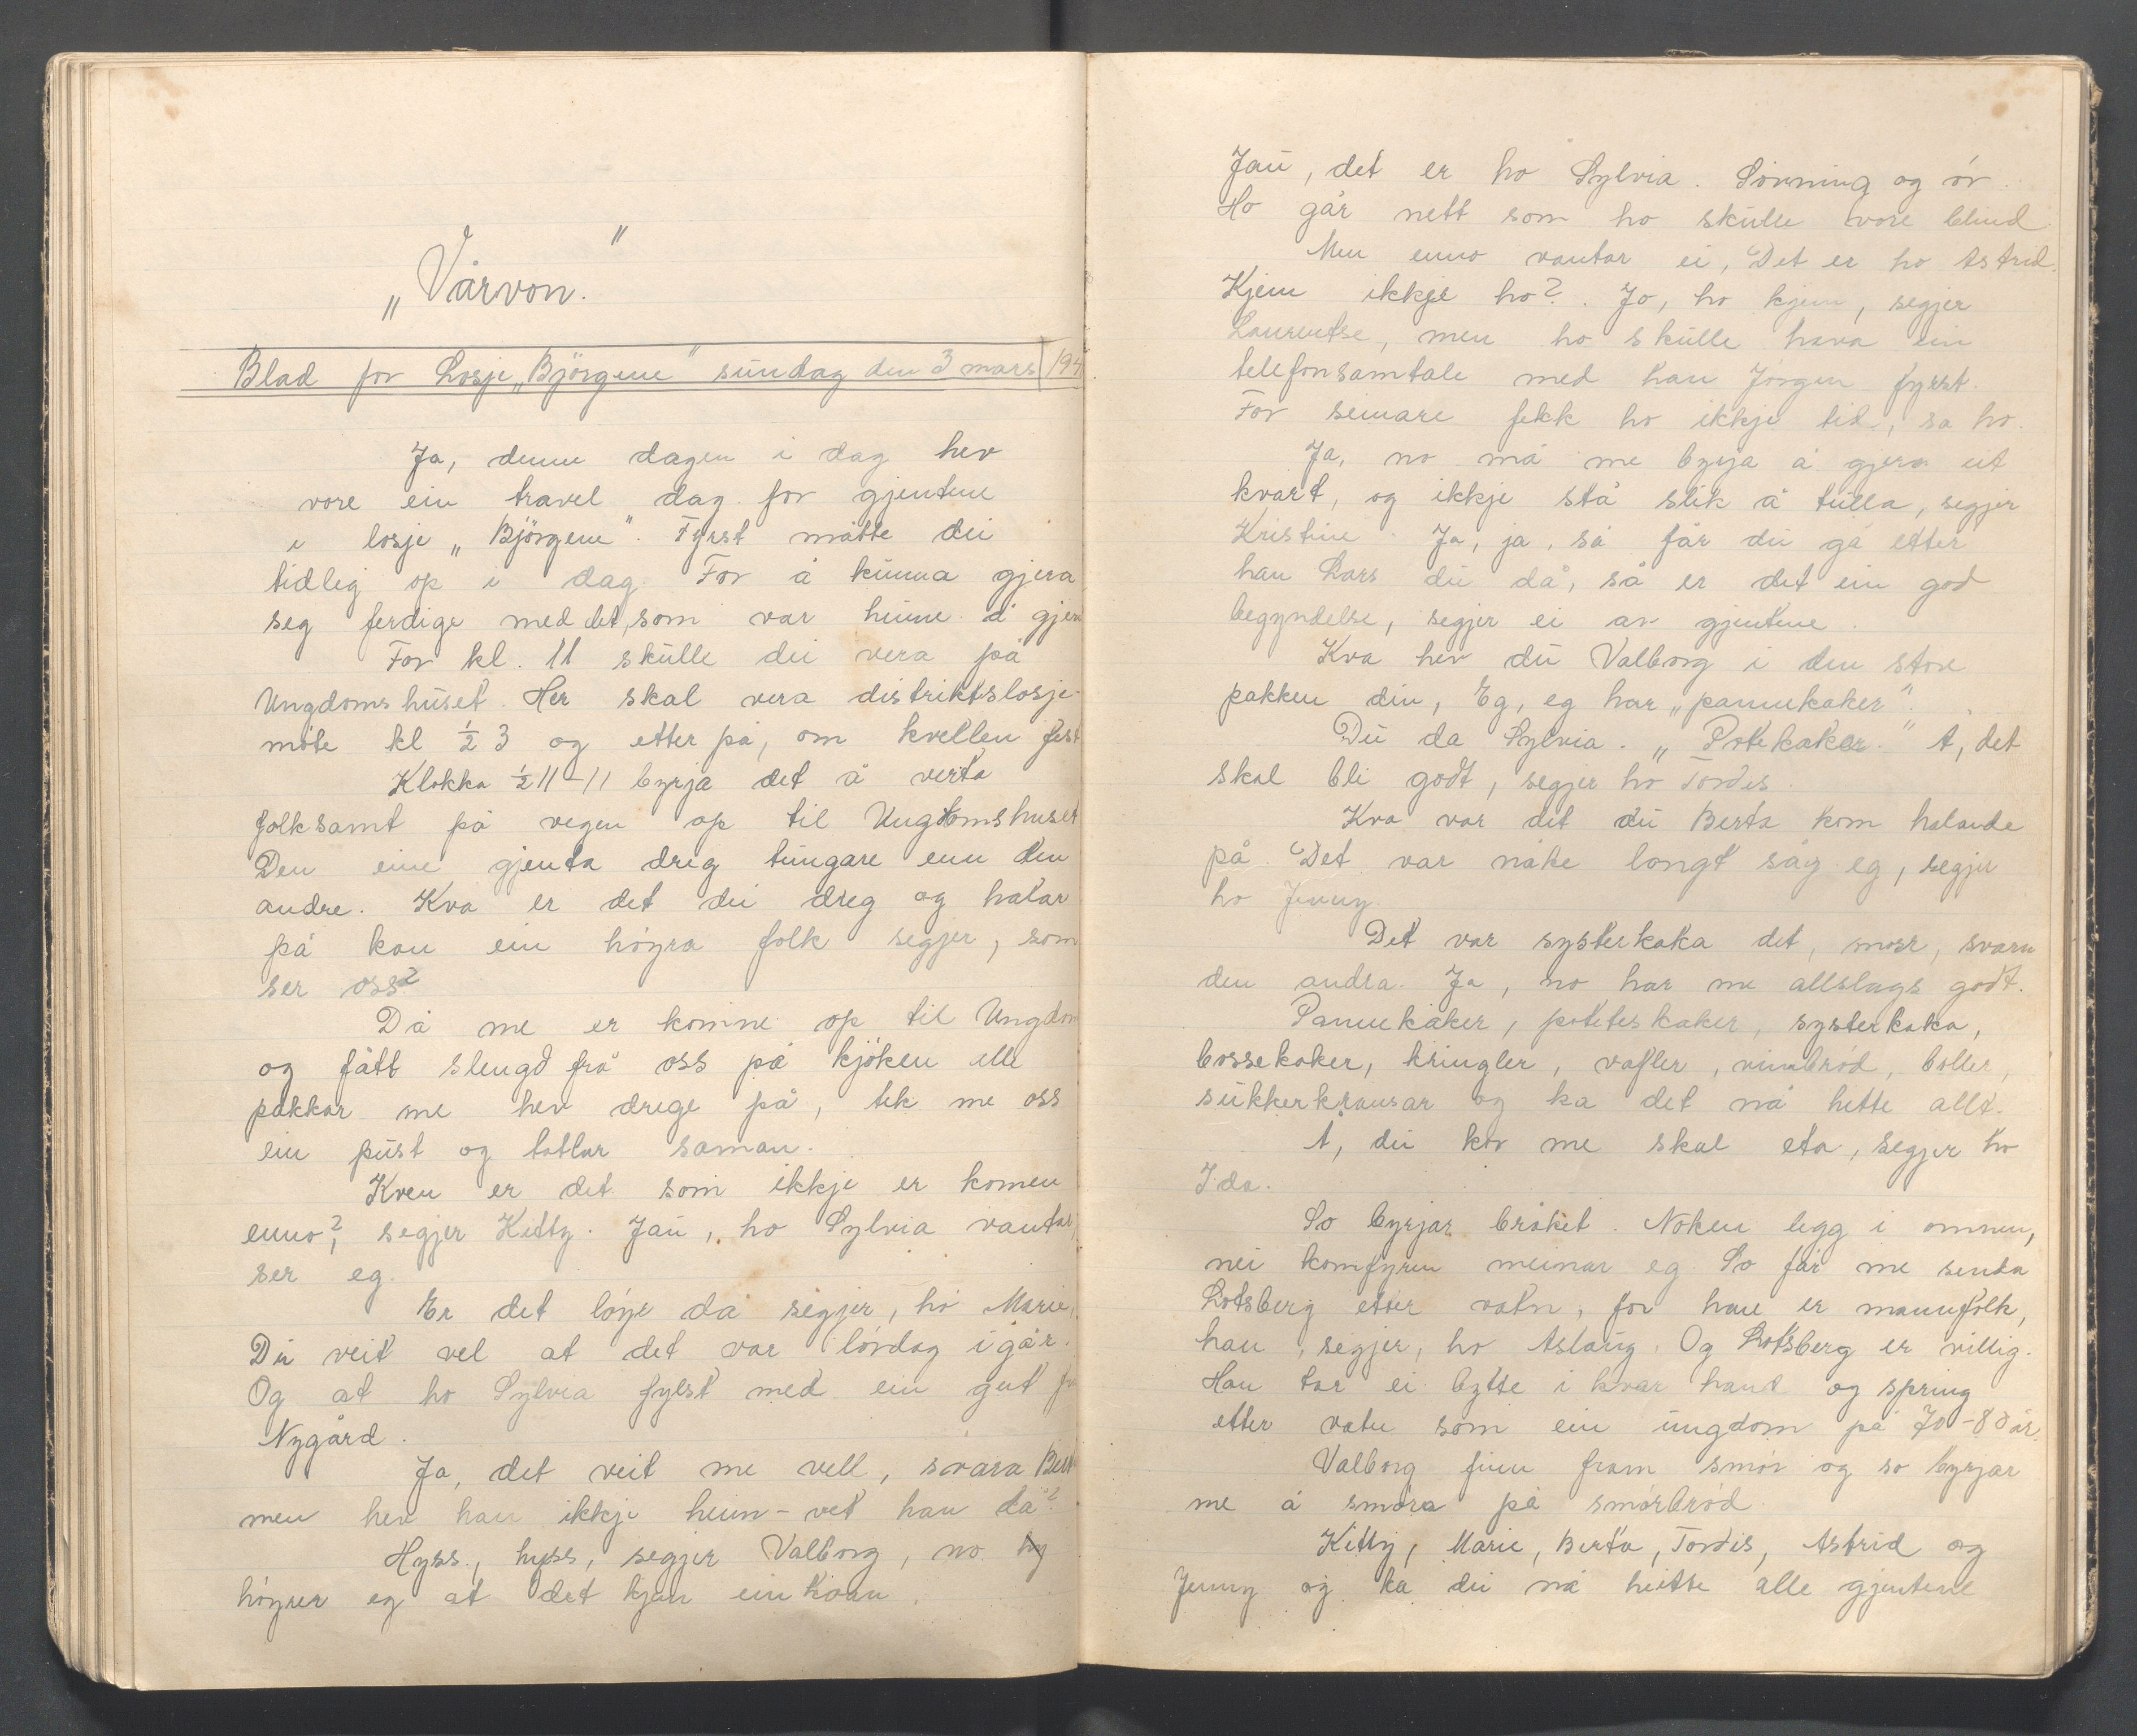 „Vårvon."
Blad for Losje „Björgene" sundag den 3 mars 194
Ja, denne dagen i dag hev
vore ein travel dag for gjentene
i losje „Björgene". Fyrst måtte dei
tidleg op i dag. For å kunna gjera
seg ferdige med det, som var heime å gjera
For kl. 11 skulle dei vera på
Ungdomshuset. Her skal vera distriktslosje-
möte kl ½ 3 og etter på, om kvellen fest
Klokka ½ 11-11 byrja det å verta
folksamt på vegen op til Ungdomshuset
Den eine gjenta dreg tungare enn den
andre. Kva er det dei dreg og halar
på kan ein höyra folk segjer, som
ser oss?
Då me er komne op til Ungdom
og fått slengd frå oss på kjöken alle
pakkar me hev drege på, tek me oss
ein pust og tatlar saman.
Kven er det som ikkje er komen
enno?, segjer Kitty. Jau, ho Sylvia vantar,
ser eg.
Er det löye då segjer, ho Marie,
Du veit vel at det var lördag igår.
Og at ho Sylvia fylst med ein gut
Nygård.
Ja, det veit me vell, svara Bert
men hev han ikkje heim-vet han då?
Hyss, hyss, segjer Valborg, no hy
höyrer eg at det kjem ein kvan.
Jau, det er ho Sylvia. Sövning og ör.
Ho går nett som ho skulle vore blind
Men enno vantar ei, Det er ho Astrid.
Kjem ikkje ho?. Jo, ho kjem, segjer
Laurentse, men ho skulle hava ein
telefonsamtale med han Jörgen fyrst.
For seinare fekk ho ikkje tid, sa ho.
Ja, no må me byrja å gjera eit
kvart, og ikkje stå slik å tulla, segjer
Kristine. Ja, ja, så får du gå etter
han Lars du då, så er det ein god
begyndelse, segjer ei av gjentene.
Kva hev du Valborg i den store
pakken din, Eg, eg har „pannekaker".
Du da Sylvia. „Potekaker." Å, det
skal bli godt, segjer ho Tordis.
Kva var det du Berta kom halande
på. Det var nåke langt såg eg, segjer
ho Jenny.
Det var systerkaka det, morr, svara
den andra. Ja, no har me allslags godt.
Pannekaker, poteteskaker, systerkaka,
bossekaker, kringler, vafler, vinebröd, boller,
sukkerkransar og ka det nå hette allt.
Å, du kor me skal eta, segjer ho
Ida.
So byrjar bråket. Noken legg i omnen,
nei komfyren meinar eg. So får me senda
Lotsberg etter vatn, for han er mannfolk,
han, segjer, ho Aslaug. Og Lotsberg er villig.
Han tar ei bytte i kvar hand og spring
etter vatn som ein ungdom på 70-80 år.
Valborg finn fram smör og so byrjar
me å smöra på smörbröd
Kitty, Marie, Berta, Tordis, Astrid og
Jenny og ka dei nå heitte alle gjentene